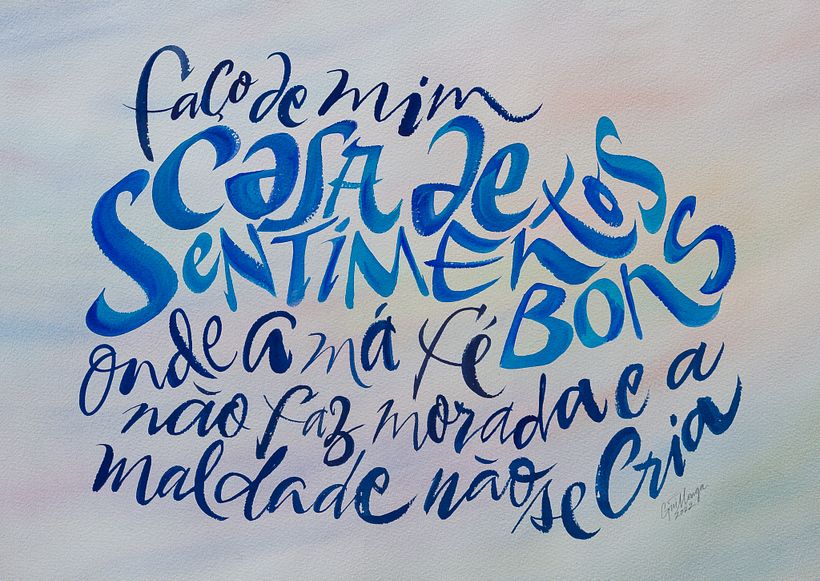 faço de mim
CASA de
SENTIMENtOS
BONS
onde a má fé
não faz morada e a
maldade não se Cria
2022